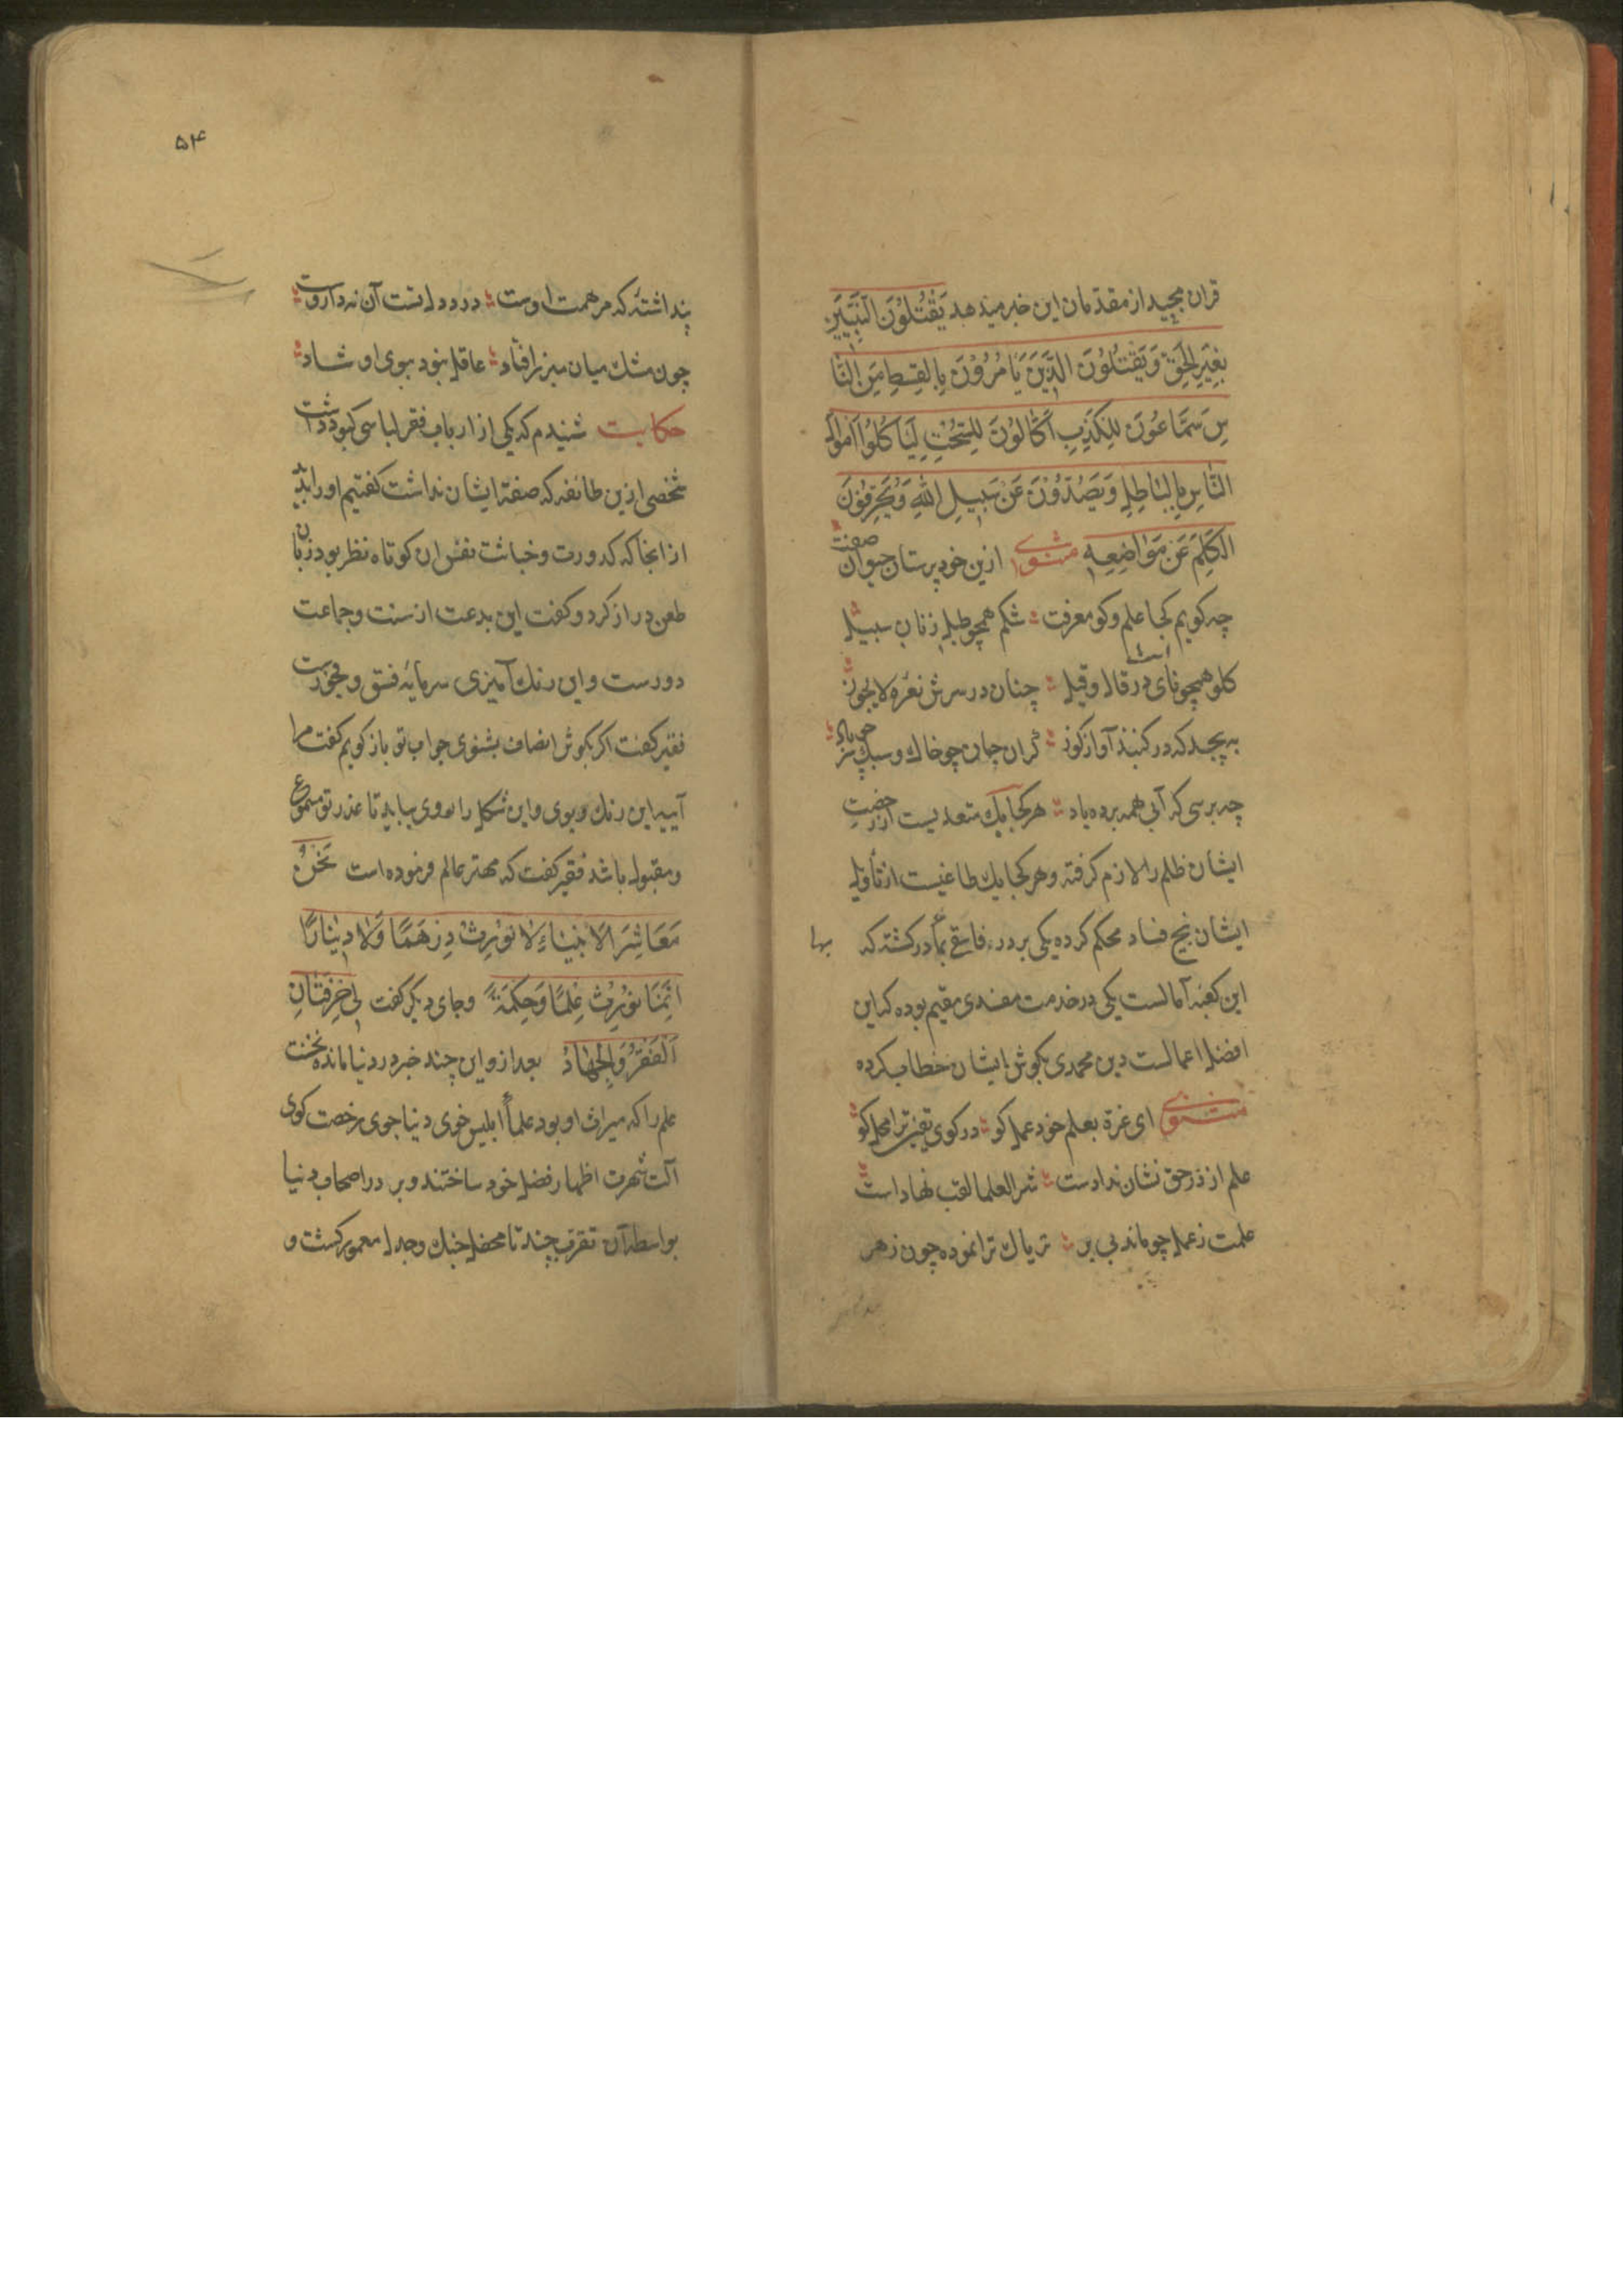 قران مجید از مقدمان این خبر میدهد یَقْتُلُونَ النَّبِیِّینَ
بِغَیْرِ الْحَقِّ وَیَقْتُلُونَ الَّذِینَ یَامُرُوْنَ بِالقِسطِ مِنَ النَّا
سِ سَمَّاعُونَ لِلْکَذِبِ اَکَّالُونَ لِلسُّحْتِ لِیَاکُلُوا اَمْوالَ
النَّاسِ بِالْبَاطِلِ وَیَصُدُّوْنَ عَنْ سَبِیلِ اللهِ وَیُحَرِّفُوْنَ
الکَلِمَ عَنْ مَوَاضِعِهِ مثنوی ازین خود پرستان حیوان صفت
چه کویم کجا علم و کو معرفت شکم همچو طبل زنان سبیل
کلو همچو نای در قال و قیل چنان در سرش نعره لا یجوز
به پیچد که در کنبذ آواز کوز کران جان چو خاک و سبک پر چو باد
چه برسی که آبی همه برده باد هر کجا یک متعدیست از رخصت
ایشان ظلم را لازم کرفته و هر کجا یک طاغیست از تأویل
ایشان نیخ فساد محکم کرده یکی بر در فاسقی بمأدر کشته که بها
این کعبه آمالست یکی در خدمت مفسدی مقیم بوده که این
افضل اعمالست دین محمدی بکوش ایشان خطاب کرده
مثنوی ای غرة بعلم خود عمل کو در کوی یقین ترا محل کو
علم از در حق نشان ندادست شر العلما لقب نهادا ست
علمت ز عمل چو ماند بی بر تریاک ترا نموده چون زهر
۵۴
پنداشتهٔ که مرهمت اوست درد دل تست آن نه داروست
چون مشک میان مبرز افتاد عاقل نبود ببوی او شاد
حکایت شنیدم که یکی از ارباب فقر لباسی کبود داشت
شخصی ازین طائفه که صفة ایشان نداشت کفتیم او را بدید
از انجا که کدورت و خباثت نفس ان کوتاه نظر بود زبان
طعن دراز کرد و کفت این بدعت از سنت و جماعت
دورست و این رنک آمیزی سرمایه فسق و فجورست
فقیر کفت اکر بکوش انصاف بشنوی جواب تو باز کویم کفت مرا
آیینه این رنک و بوی و این شکل را روی بباید تا عذر تو مسموع
و مقبول باشد فقیر کفت که مهتر عالم فرموده است نَحْنُ
مَعَاشِرَ الاَنْبِیَاءِ لَا نُوْرِثُ دِرْهَمًا وَلَا دِیْنَارًا
اِنَّمَا نُوْرِثُ عِلْمًا وَحِکْمَةً و جای دیکر کفت لِی خِرْفَتَانِ
اَلْفَقْرُ وَالْجِهَادُ بعد از و این چند خبر در دنیا مانده نخست
علم را که میراث او بود علمأ ابلیس خوی دنیا جوی رخصت کوی
آلت شهرت اظهار فضل خود ساختند و بر در اصحاب دنیا
بواسطه آن تقرب چند تا محفل جنک و جدل معمور کشت و